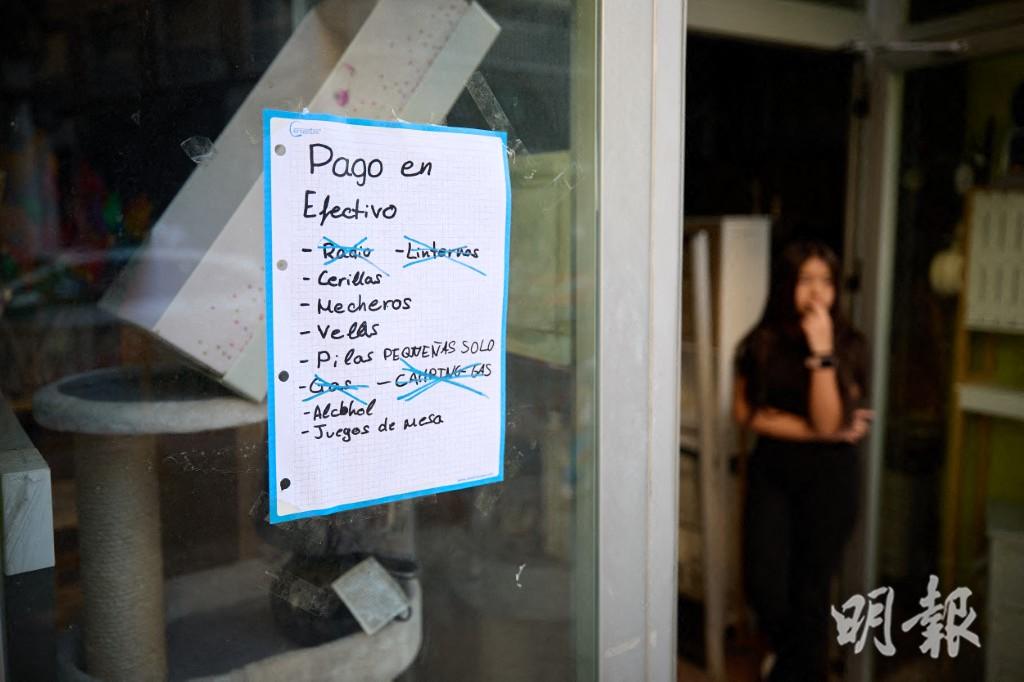 Pago en
Efectivo
- Radio - Linternas
- Cerillas
- Mecheros
- Velas
- Pilas PEQUEÑAS SOLO
- Gas - CAMPING-GAS
- Alcohol
- Juegos de mesa
明報